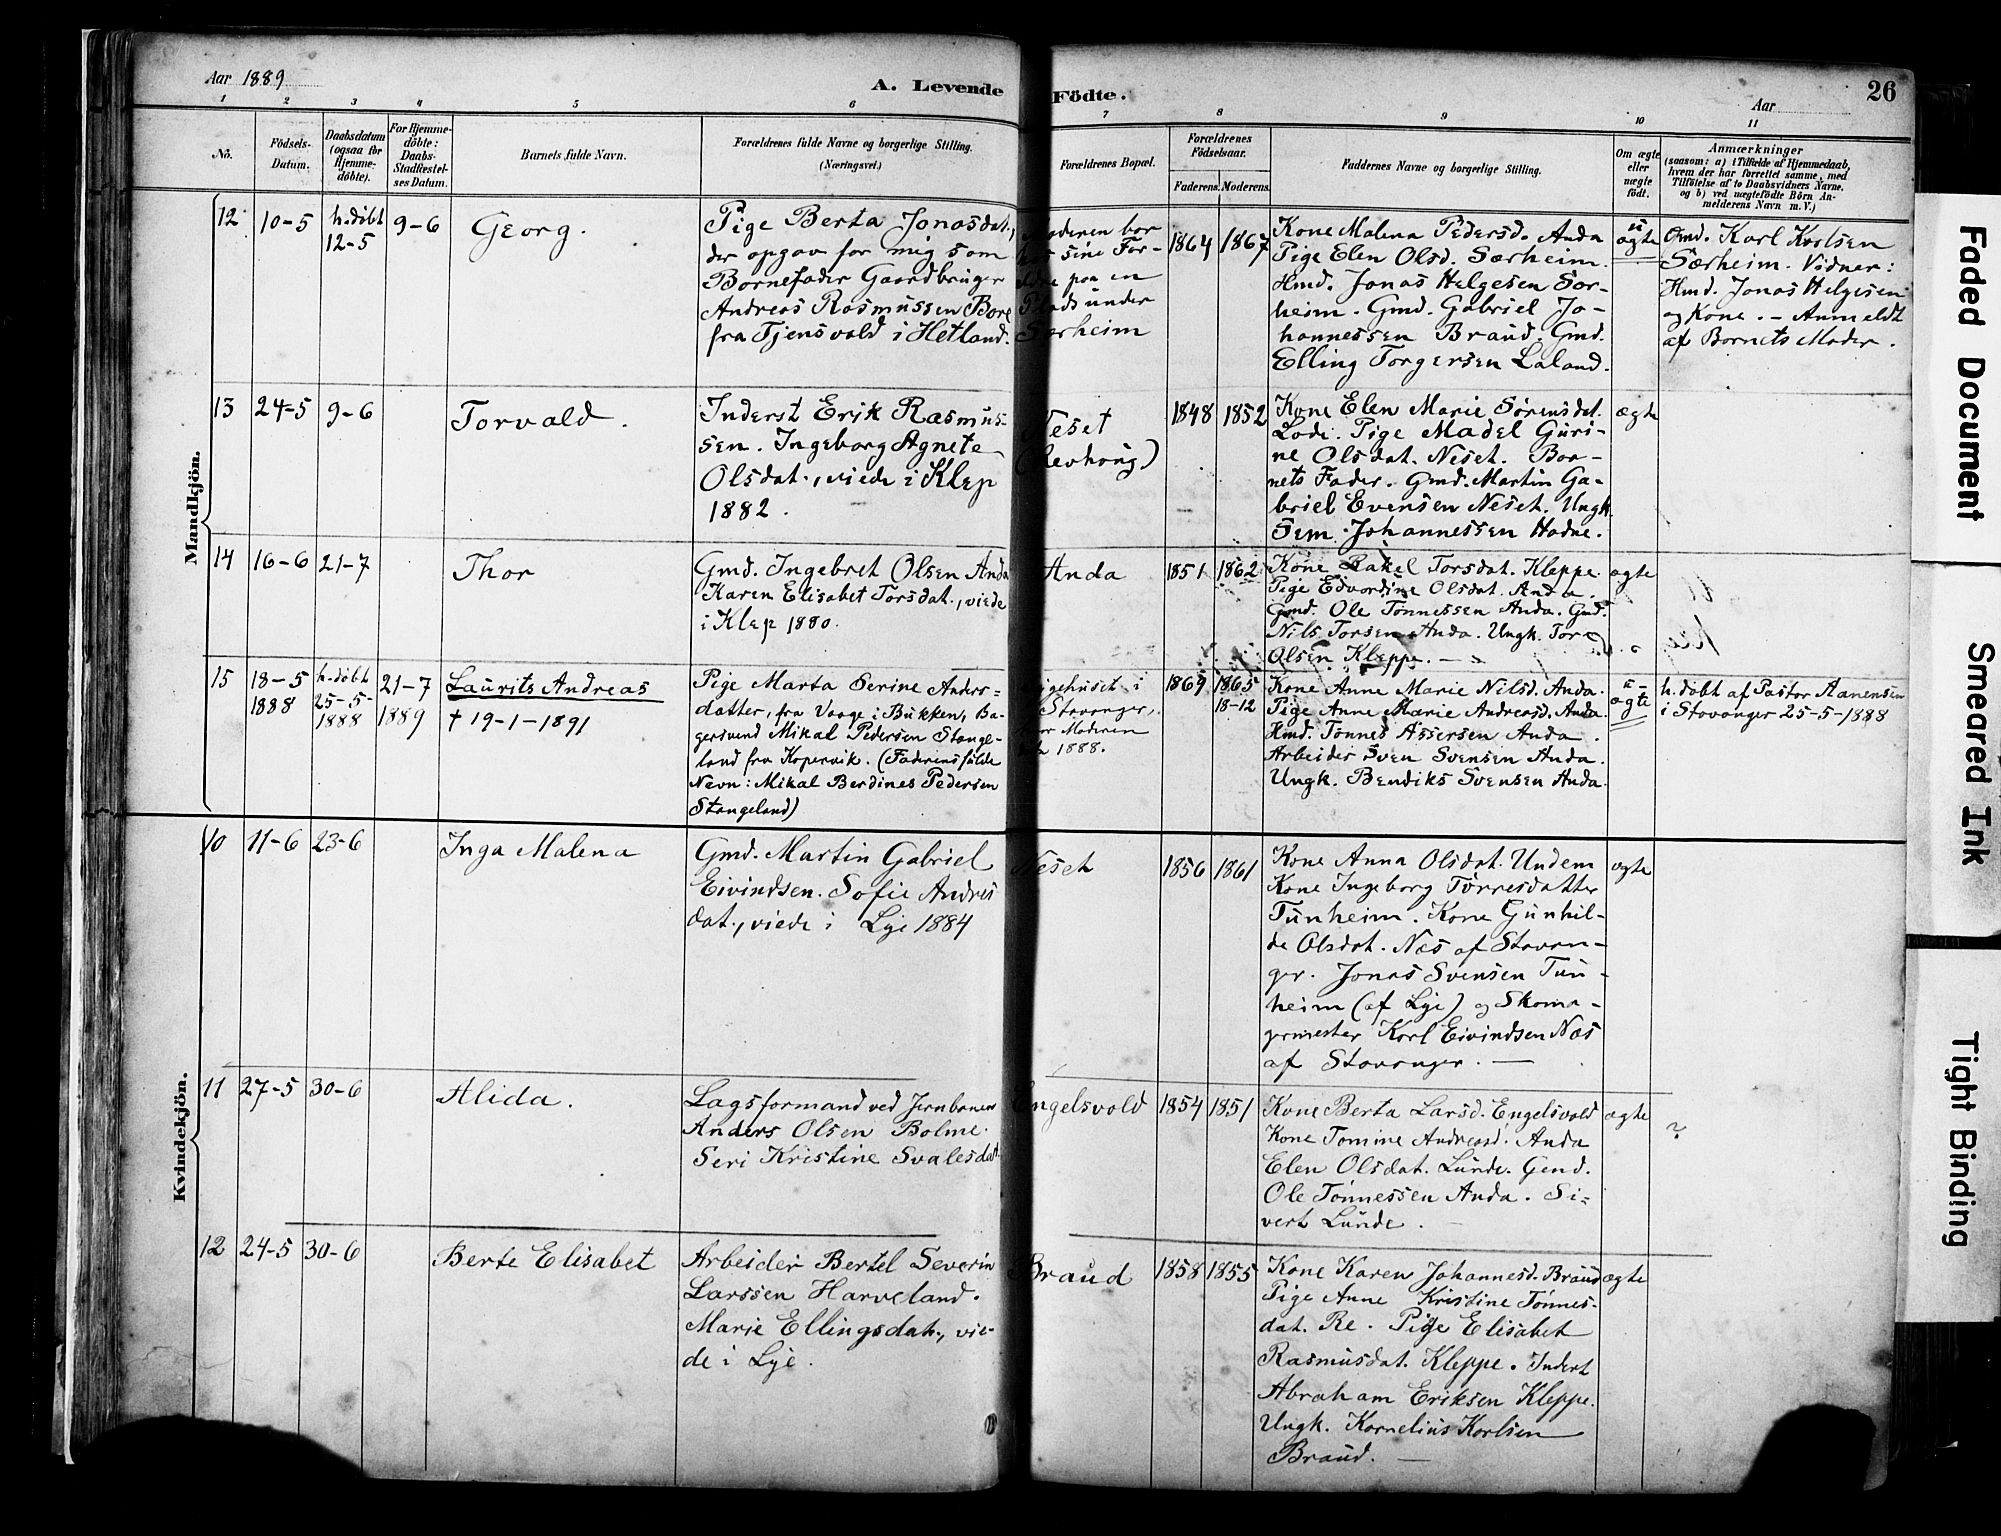 Aar 1889
A. Levende Födte.
Aar
26
1 2 3 4 5 6 7 8 9 10 11
No.
Födsels-
Datum.
Daabsdatum
(ogsaa for
Hjemme-
döbte).
For Hjemme-
döbte:
Daabs-
Stadfæstel-
ses Datum.
Barnets fulde Navn.
Forældrenes fulde Navne og borgerlige Stilling.
(Næringsvei.)
Forældrenes Bopæl.
Forældrenes
Födselsaar.
Faderens. Moderens.
Faddernes Navne og borgerlige Stilling.
Om ægte
eller
uægte
födt.
Anmærkninger
(saasom: a) i Tilfælde af Hjemmedaab,
hvem der har forrettet samme, med
Tilföielse af to Daabsvidners Navne,
og b) ved uægtefödte Börn An-
melderens Navn m. V.)
Mandkjön.
12
10-5
h.döbt
12-5
9-6
Georg.
Pige Berta Jonasdat.,
der opgav for mig som
Barnefader Gaardbruger
Andreas Rasmussen Bore
fra Tjensvold i Hetland.
Moderen bor
hos sine For-
ældre paa en
Plads under
Særheim
1864
1867
Kone Malena Pedersd. Anda
Pige Elen Olsd. Særheim.
Hmd. Jonas Helgesen Sær-
heim. Gmd. Gabriel Jo-
hannessen Braud. Gmd.
Elling Torgersen Laland.
u
ægte
Gmd. Karl Karlsen
Særheim. Vidner:
Hmd. Jonas Helgesen
og Kone. - Anmeldt
af Barnets Moder.
13
24-5
9-6
Torvald.
Inderst Erik Rasmus-
sen. Ingeborg Agnete
Olsdat., viede i Klep
1882.
Neset
(Revhaug)
1848
1852
Kone Elen Marie Sørensdat.
Lode. Pige Madel Guri-
ne Olsdat. Neset. Bar-
nets Fader. Gmd. Martin Ga-
briel Evensen Neset. Ungk.
Sem. Johannessen Hodne.
ægte
14
16-6
21-7
Thor
Gmd. Ingebret Olsen Anda
Karen Elisabet Torsdat., viede
i Klep 1880.
Anda
1851
1862
Kone Rakel Torsdat. Kleppe.
Pige Edvardine Olsdat. Anda.
Gmd. Ole Tønnessen Anda. Gmd.
Nils Torsen Anda. Ungk. Tore
Olsen Kleppe. —
ægte
15
18-5
1888
h.döbt
25-5-
1888
21-7
1889
Laurits Andreas
† 19-1-1891
Pige Marta Serine Anders=
datter, fra Vaage i Bukken, Ba-
gersvend Mikal Pedersen Stange-
land fra Kopervik. (Faderens fulde
Navn: Mikal Berdines Pedersen
Stangeland)
Sygehuset i
Stavanger,
bor Moderen
1888.
1869
1865
18-12
Kone Anne Marie Nilsd. Anda.
Pige Anne Marie Andreasd. Anda
Hmd. Tønnes Assersen Anda.
Arbeider Sven Svensen Anda.
Ungk. Bendiks Svensen Anda
u-
ægte
h.döbt af Pastor Aanensen
i Stavanger 25-5-1888
Kvindekjön.
10
11-6
23-6
Inga Malena
Gmd. Martin Gabriel
Eivindsen. Sofie Andres
dat., viede i Lye 1884
Neset
1856
1861
Kone Anna Olsdat. Undem
Kone Ingeborg Tørresdatter
Tunheim. Kone Gunhil-
de Olsdat. Næs af Stavan-
ger. Jonas Svensen Tun-
heim (af Lye) og Skoma-
germester Karl Eivindsen Næs
af Stavanger. —
ægte
11
27-5
30-6
Alida.
Lagsformand ved Jernbanen
Anders Olsen Bolme.
Seri Kristine Svalesdat.
Engelsvold
1854
1851
Kone Berta Larsd. Engelsvold
Kone Tomine Andreasd. Anda
Elen Olsdat. Lunde. Gmd.
Ole Tønnessen Anda. Si-
vert Lunde. —
ægte
?
12
24-5
30-6
Berte Elisabet
Arbeider Bertel Severin
Larssen Harveland.
Marie Ellingsdat., vie-
de i Lye.
Braud
1858
1855
Kone Karen Johannesd. Braud
Pige Anne Kristine Tønnes-
dat. Re. Pige Elisabet
Rasmusdat. Kleppe. Inderst
Abraham Eriksen Kleppe.
Ungk. Kornelius Karlsen
Braud. —
ægte
Faded Document
Smeared Ink
Tight Binding